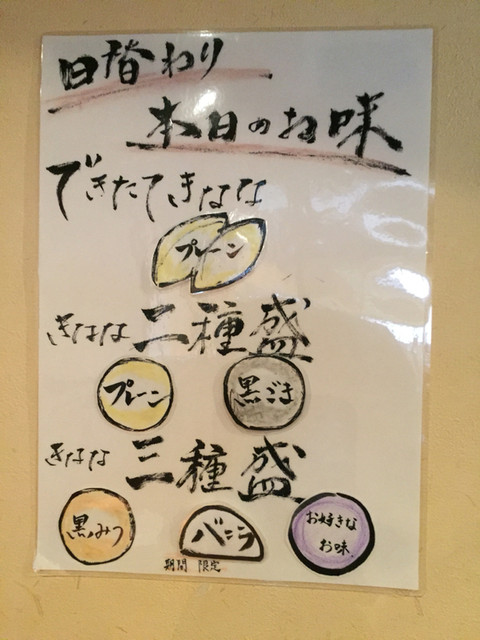 日替わり
本日のお味
できたてきなな
プレーン
きなな 二種盛
プレーン 黒ごま
きなな 三種盛
黒みつ バニラ お好きな
お味
期間 限定